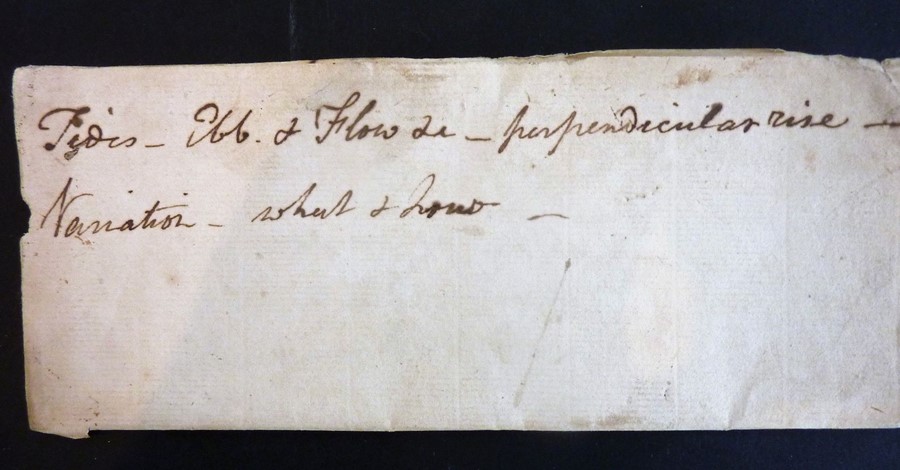 Tydes – Ebb. & Flow &c – perpendicular rise –
Variation – what & how –